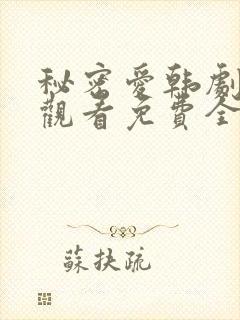 秘密愛韩劇
觀看免費全
蘇扶疏